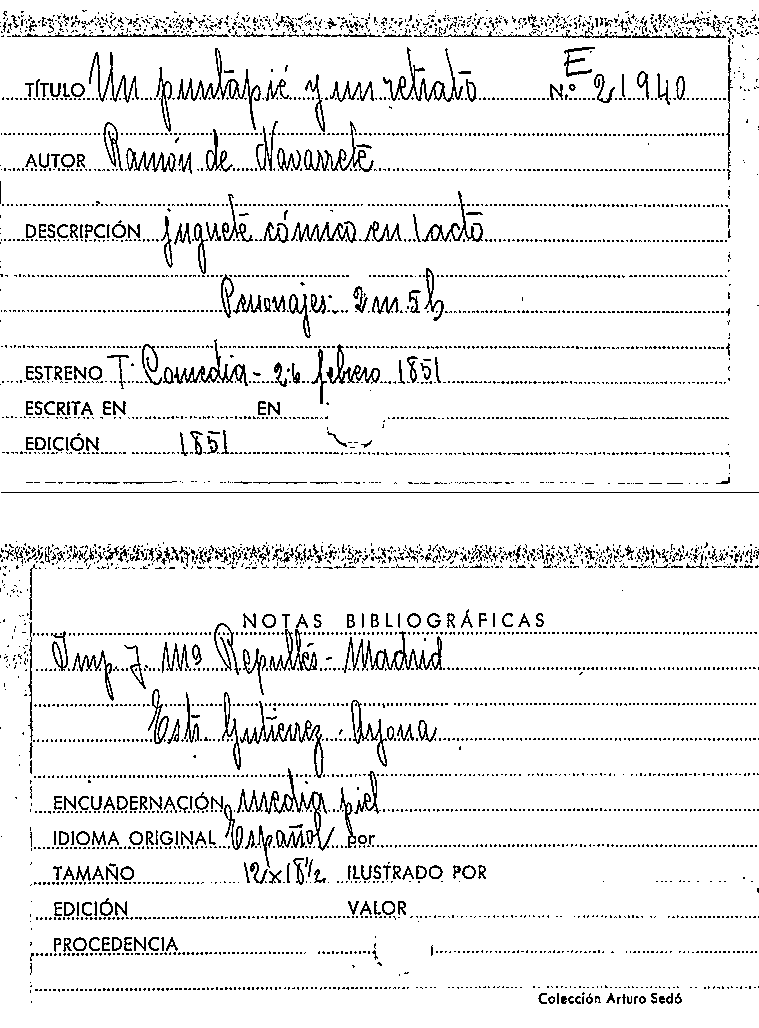 TÍTULO Un puntapié y un retrato N.º E 21940
AUTOR Ramón de Navarrete
DESCRIPCIÓN juguete cómico en 1 acto
Personajes: 2 m 5 h
ESTRENO T. Comedia - 26 febrero 1851
ESCRITA EN EN
EDICIÓN 1851
NOTAS BIBLIOGRÁFICAS
Imp J. Mª Repullés - Madrid
Estr. Gutierrez - Arjona
ENCUADERNACIÓN media piel
IDIOMA ORIGINAL Español por
TAMAÑO 12x18½ ILUSTRADO POR
EDICIÓN VALOR
PROCEDENCIA
Colección Arturo Sedó